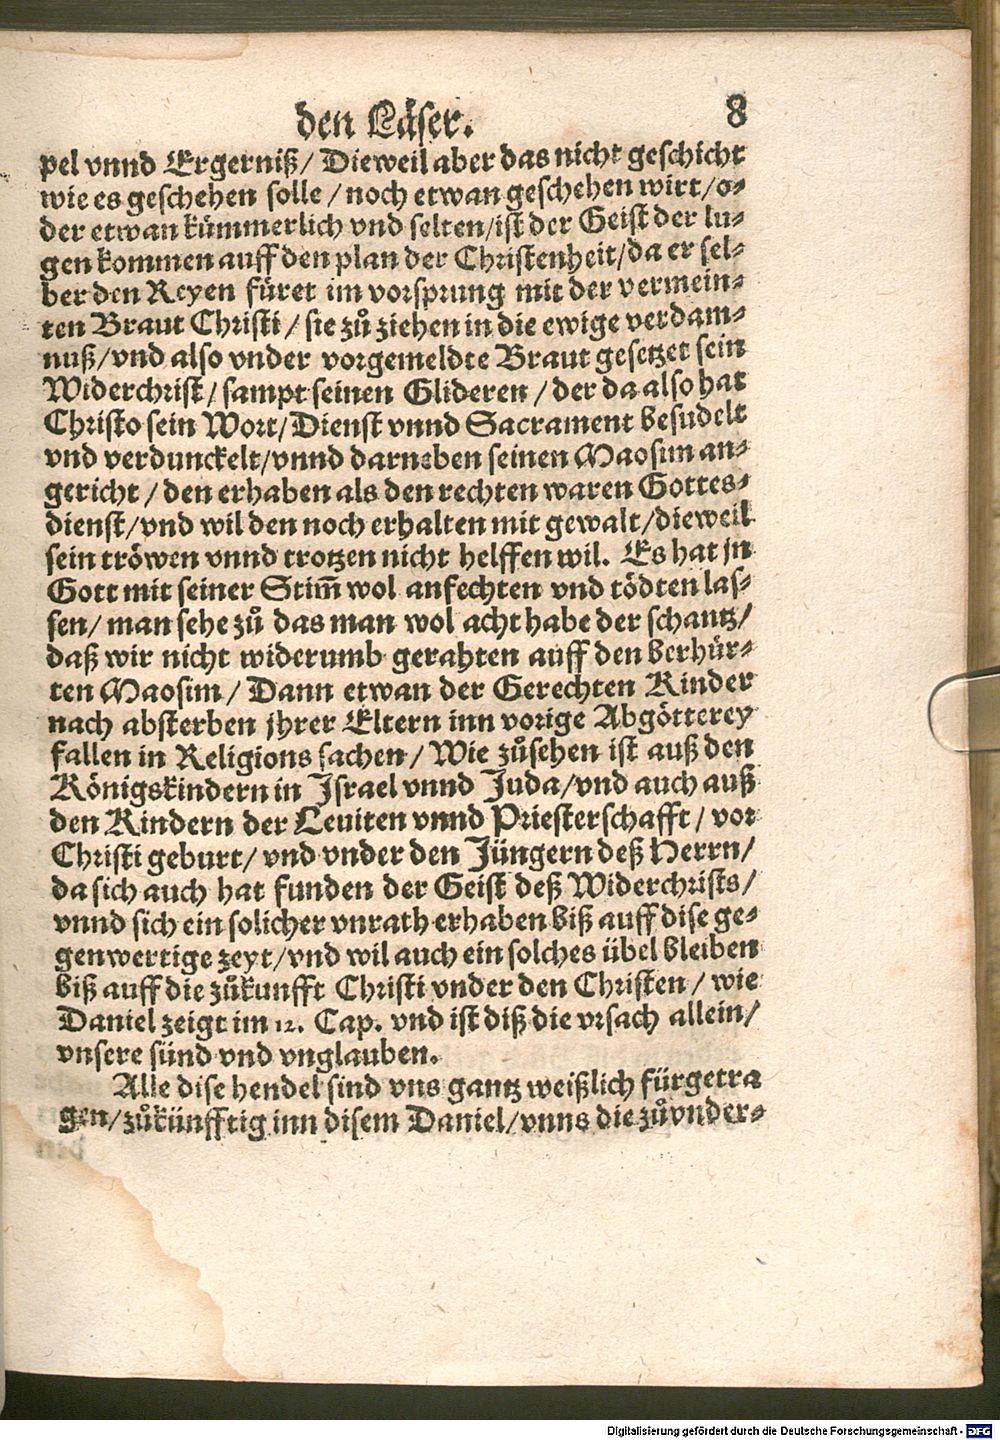 den Läser. 8
pel vnnd Ergerniß/ Dieweil aber das nicht geschicht
wie es geschehen solle / noch etwan geschehen wirt/o⸗
der etwan kümmerlich vnd selten/ist der Geist der lu⸗
gen kommen auff den plan der Christenheit/da er sel⸗
ber den Reyen füret im vorsprung mit der vermein⸗
ten Braut Christi / sie zů ziehen in die ewige verdam⸗
nuß/vnd also vnder vorgemeldte Braut gesetzet sein
Widerchrist/ sampt seinen Glideren / der da also hat
Christo sein Wort/Dienst vnnd Sacrament besudelt
vnd verdunckelt/vnnd darneben seinen Maosim an⸗
gericht / den erhaben als den rechten waren Gottes⸗
dienst/vnd wil den noch erhalten mit gewalt/dieweil
sein tröwen vnnd trotzen nicht helffen wil. Es hat jn
Gott mit seiner Stim̃ wol anfechten vnd tödten las⸗
sen/ man sehe zů das man wol acht habe der schantz/
daß wir nicht widerumb gerahten auff den berhür⸗
ten Maosim/ Dann etwan der Gerechten Kinder
nach absterben jhrer Eltern inn vorige Abgötterey
fallen in Religions sachen/ Wie zůsehen ist auß den
Königskindern in Israel vnnd Juda/vnd auch auß
den Kindern der Leuiten vnnd Priesterschafft/ vor
Christi geburt/ vnd vnder den Jüngern deß Herrn/
da sich auch hat funden der Geist deß Widerchrists/
vnnd sich ein solicher vnrath erhaben biß auff dise ge⸗
genwertige zeyt/vnd wil auch ein solches übel bleiben
biß auff die zůkunfft Christi vnder den Christen/ wie
Daniel zeigt im 12. Cap. vnd ist diß die vrsach allein/
vnsere sünd vnd vnglauben.
Alle dise hendel sind vns gantz weißlich fürgetra
gen/zůkünfftig inn disem Daniel/vnns die zůvnder⸗
Digitalisierung gefördert durch die Deutsche Forschungsgemeinschaft - DFG